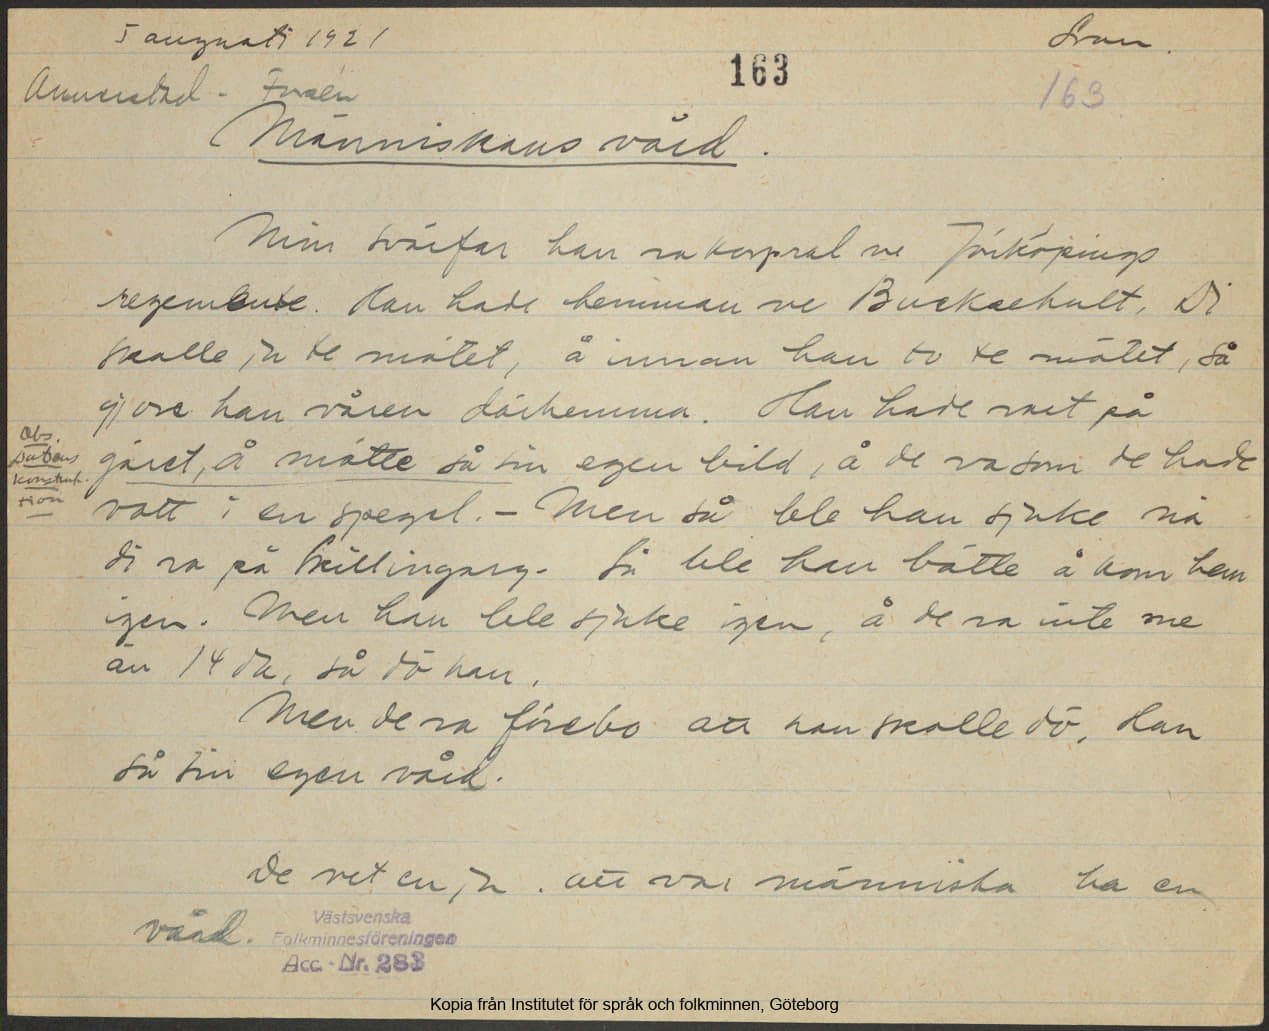 5 augusti 1921
163
163
Annerstad - Forsén
Människans vård.
Min svärfar han va korpral ve Jönköpings
regemente. Han hade hemman ve Buckaehult. Di
skolle ju te mötet, å innan han to te mötet, så
gjore han våren därhemma. Han hade vart på
gäret, å mötte så sin egen bild, å de va som de hade
vatt i en spegel. - Men så ble han sjuke nä
di va på Skillingaryd. Så ble han bätte å kom hem
igen. Men han ble sjuke igen, å de va inte me
än 14 da, så dö han.
Men de va förebo att han skolle dö. Han
så sin egen vård.
De vet en ju. att var människa ha en
vård.
Obs.
konstruk-
tion
Västsvenska
Folkminnesföreningen
Acc. - Nr. 283
Kopia från Institutet för språk och folkminnen, Göteborg